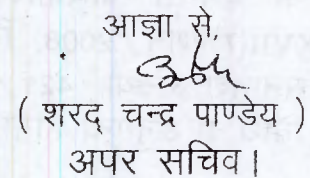 आज्ञा से,
( शरद् चन्द्र पाण्डेय )
अपर सचिव।